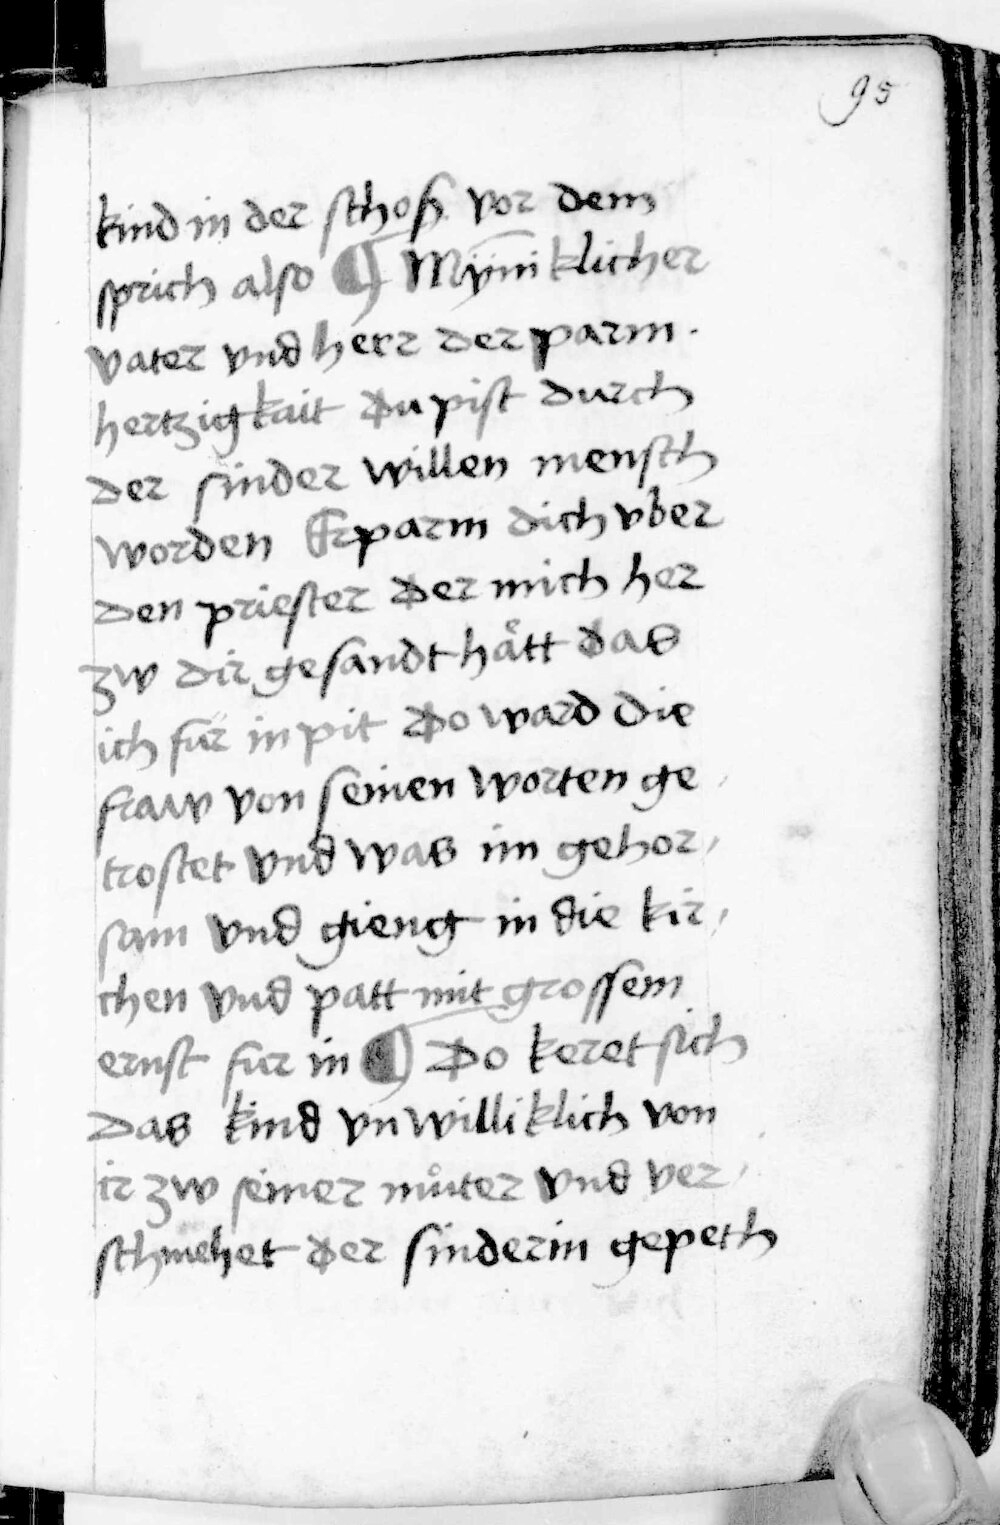 95
kind in der schoß vor dem
sprich also ¶ Mÿn̅iklicher
vater vnd herr der parm·
hertzigkait Du pist durch
der sinder willen mensch
worden Erparm dich vber
den priester der mich her
zw dir gesandt hått das
ich fur in pit Do ward die
fraw von seinen worten ge,
trostet vnd was im gehor,
sam vnd gieng in die kir,
chen vnd patt mit grossem
ernst fur in ¶ Do keret sich
das kind vnwilliklich von
ir zw seiner můter vnd ver,
schmehet der sinderin gepeth